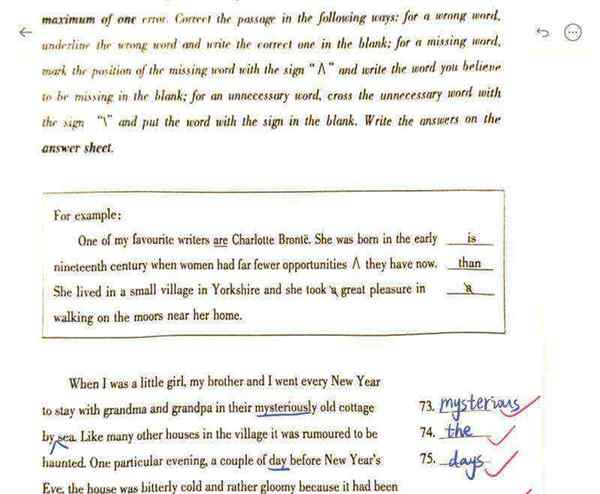 maximum of one error. Correct the passage in the following ways: for a wrong word,
underline the wrong word and write the correct one in the blank; for a missing word,
mark the position of the missing word with the sign "∧" and write the word you believe
to be missing in the blank; for an unnecessary word, cross the unnecessary word with
the sign "\" and put the word with the sign in the blank. Write the answers on the
answer sheet.
For example:
One of my favourite writers are Charlotte Brontë. She was born in the early is
nineteenth century when women had far fewer opportunities ∧ they have now. than
She lived in a small village in Yorkshire and she took a great pleasure in a
walking on the moors near her home.
When I was a little girl, my brother and I went every New Year
to stay with grandma and grandpa in their mysteriously old cottage 73. mysterious
by sea. Like many other houses in the village it was rumoured to be 74. the
haunted. One particular evening, a couple of day before New Year's 75. days
Eve, the house was bitterly cold and rather gloomy because it had been